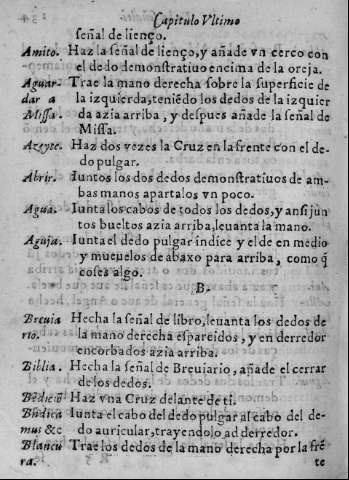 Capitulo Vltimo
señal de lienço.
Amito. Haz la señal de lienço, y añade vn cerco con
el dedo demonstratiuo encima de la oreja.
Aguar- Trae la mano derecha sobre la superficie de
dar a la izquierda, teniẽdo los dedos de la izquier
Missa. da azia arriba, y despues añade la señal de
Missa.
Azeyte. Haz dos vezes la Cruz en la frente con el de-
do pulgar.
Abrir. Iuntos los dos dedos demonstratiuos de am-
bas manos apartalos vn poco.
Agua. Iunta los cabos de todos los dedos, y ansi jun
tos bueltos azia arriba, leuanta la mano.
Aguja. Iunta el dedo pulgar indice y el de en medio
y mueuelos de abaxo para arriba, como q̃
coses algo.
B.
Breuia Hecha la señal de libro, leuanta los dedos de
rio. la mano derecha espareidos, y en derredor
encorbados azia arriba.
Biblia. Hecha la señal de Breuiario, añade el cerrar
de los dedos.
Haz vna Cruz delante de ti.
Iunta el cabo del dedo pulgar al cabo del de-
mus &c do auricular, trayendolo ad derredor.
Blancu Trae los dedos de la mano derecha por la frẽ
ra. te